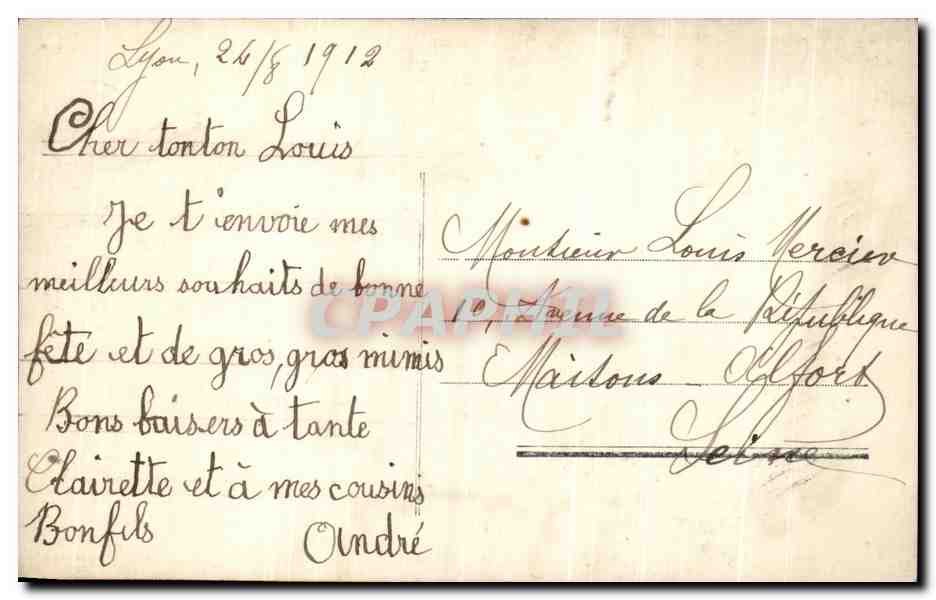 Lyon, 24/8 1912
Cher tonton Louis
Je t'envoie mes
meilleurs souhaits de bonne
fête et de gros, gros mimis
Bons baisers à tante
Clairette et à mes cousins
Bonfils
André
Monsieur Louis Mercier
10, Avenue de la République
Maisons-Alfort
Seine
CPAPHIL